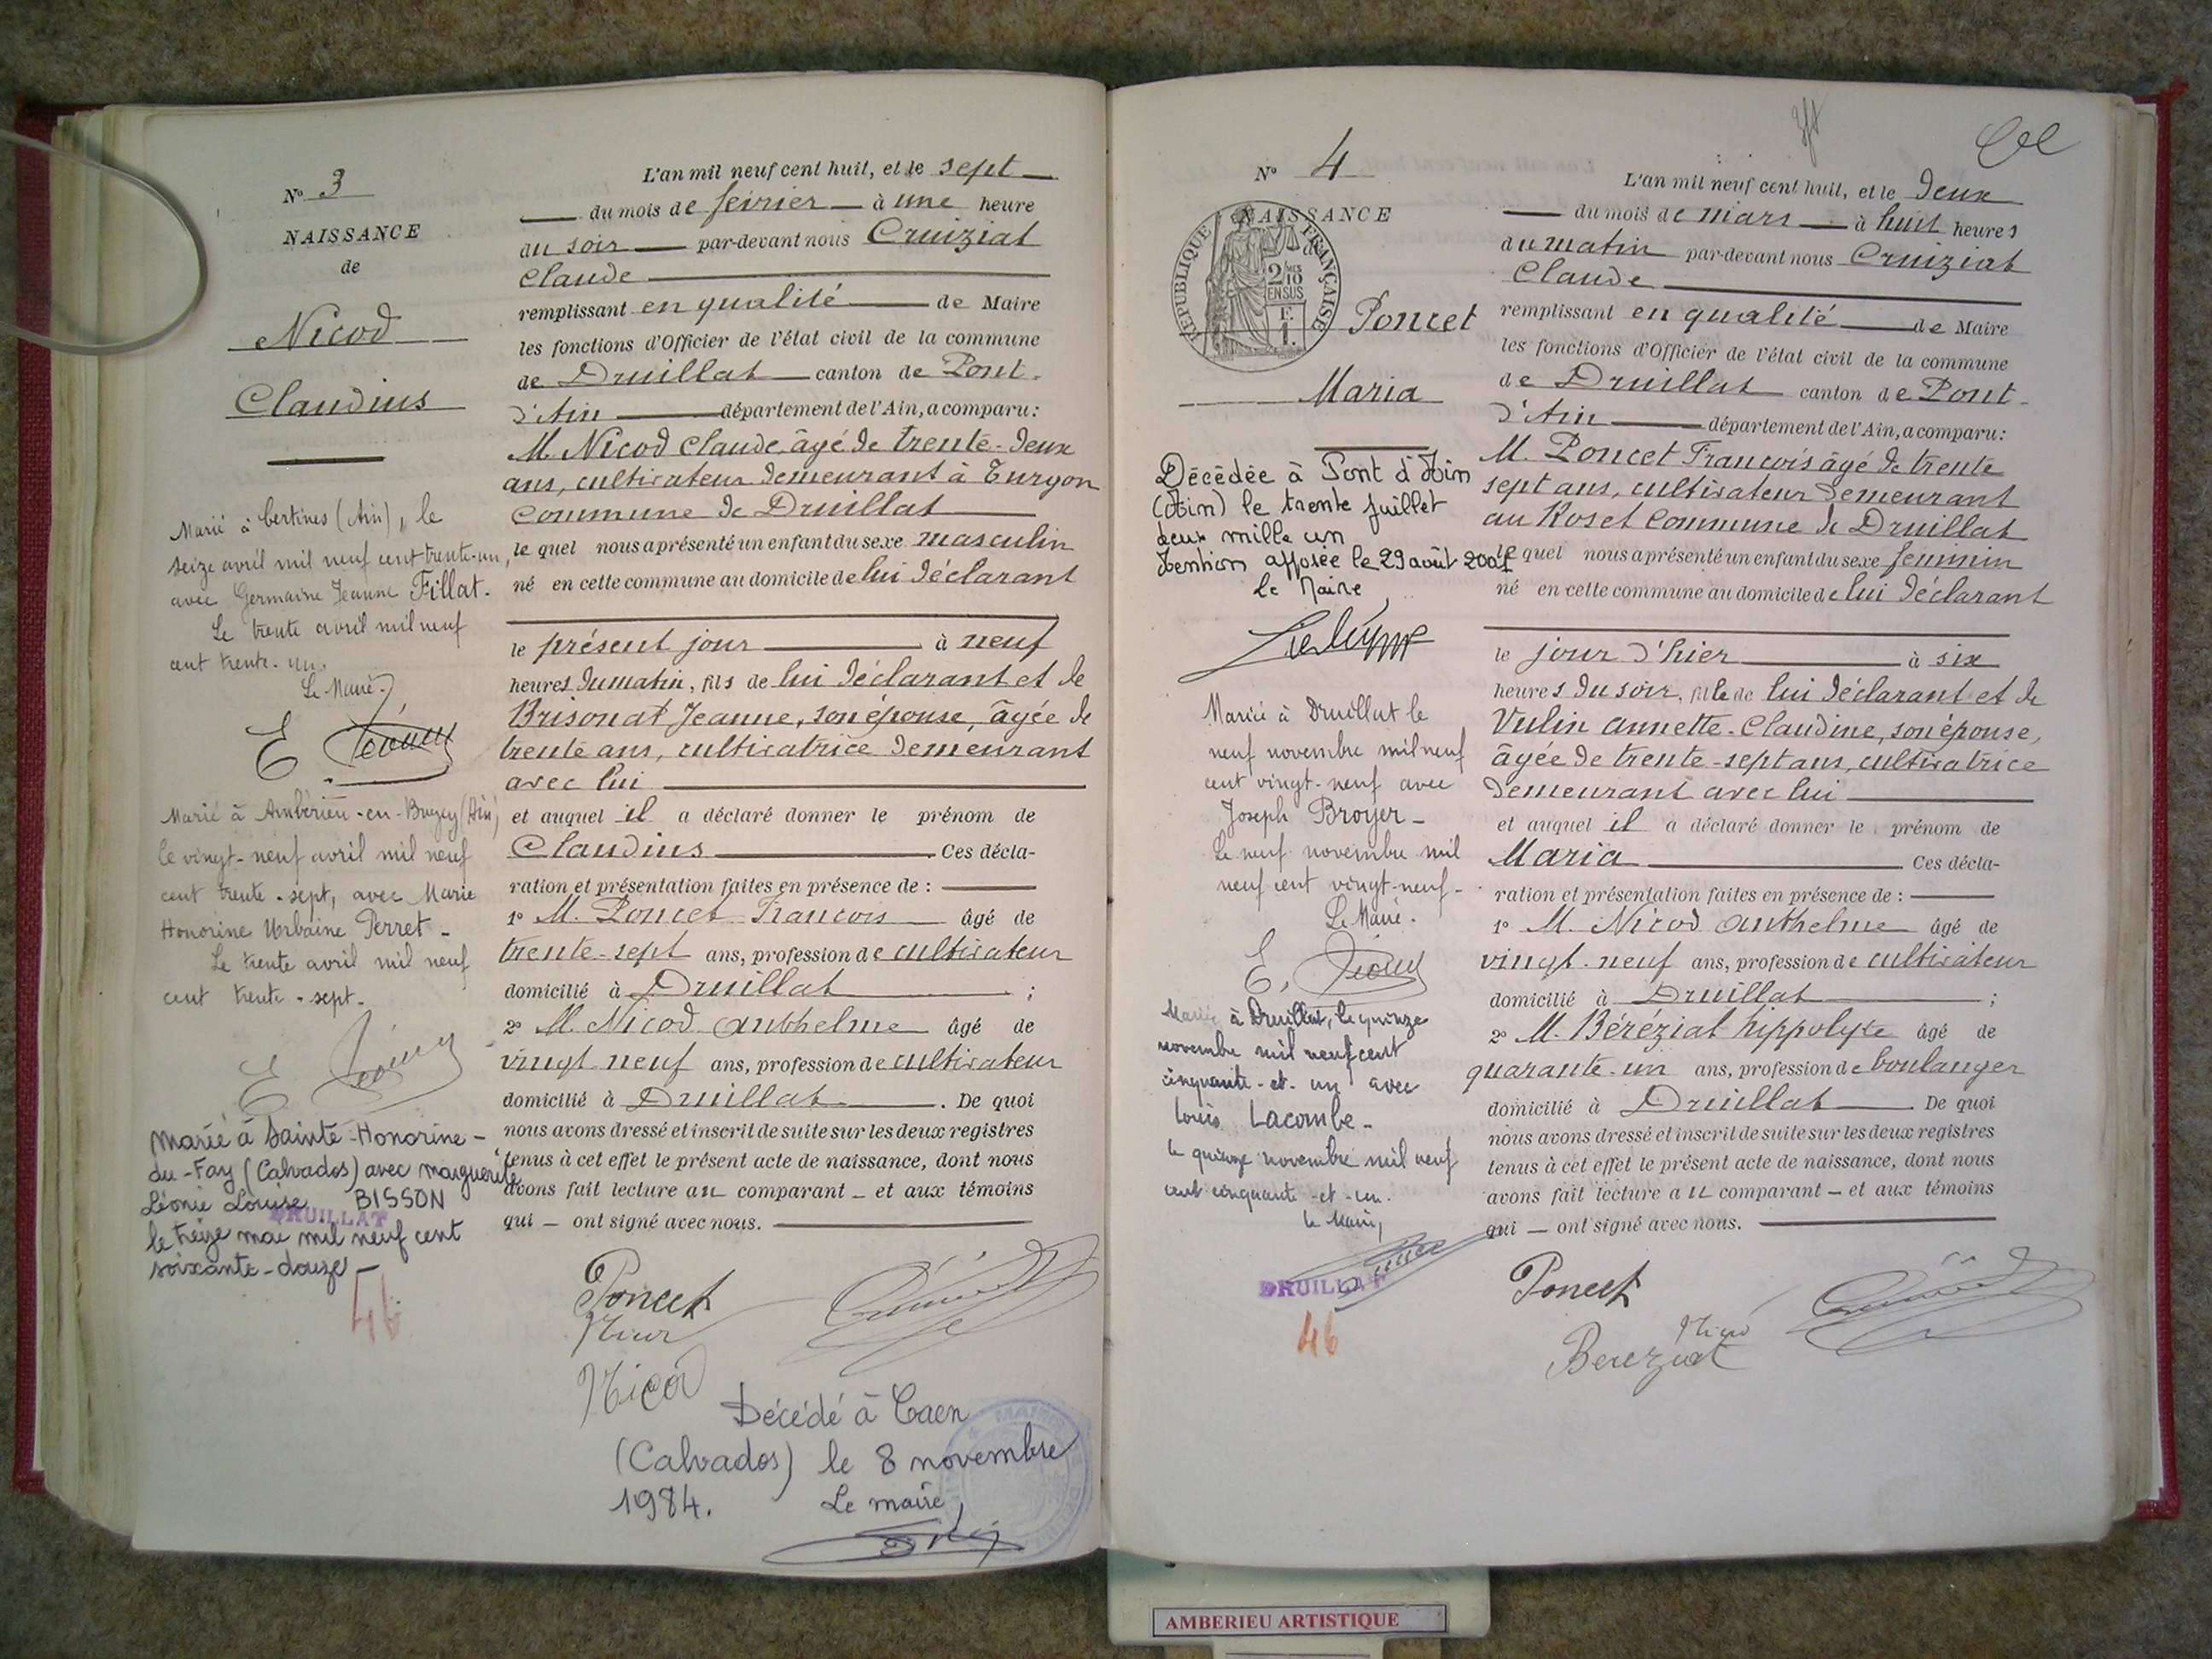 N° 3
NAISSANCE
de
Nicod
Claudius
Marié à Certines (Ain), le
seize avril mil neuf cent trente-un,
avec Germaine Jeanne Fillat.
Le trente avril mil neuf
cent trente-un.
Le Maire
E
Marié à Ambérieu-en-Bugey (Ain)
le vingt-neuf avril mil neuf
cent trente-sept, avec Marie
Honorine Urbaine Perret -
Le trente avril mil neuf
cent trente-sept.
E
Marié à Sainte-Honorine-
du-Fay (Calvados) avec Marguerite
Léonie Louise BISSON
DRUILLAT
le treize mai mil neuf cent
soixante-douze -
46
L'an mil neuf cent huit, et le sept
du mois de février à une heure
du soir par-devant nous Cruiziat
Claude
remplissant en qualité de Maire
les fonctions d'Officier de l'état civil de la commune
de Druillat canton de Pont-
d'Ain département de l'Ain, a comparu:
M. Nicod Claude, âgé de trente-deux
ans, cultivateur demeurant à Turgon
commune de Druillat
le quel nous a présenté un enfant du sexe masculin
né en cette commune au domicile de lui déclarant
le présent jour à neuf
heures du matin, fils de lui déclarant et de
Brisonat Jeanne, son épouse, âgée de
trente ans, cultivatrice demeurant
avec lui
et auquel il a déclaré donner le prénom de
Claudius Ces décla-
ration et présentation faites en présence de :
1° M. Poncet François âgé de
trente-sept ans, profession de cultivateur
domicilié à Druillat ;
2° M. Nicod Anthelme âgé de
vingt-neuf ans, profession de cultivateur
domicilié à Druillat . De quoi
nous avons dressé et inscrit de suite sur les deux registres
tenus à cet effet le présent acte de naissance, dont nous
avons fait lecture au comparant _ et aux témoins
qui _ ont signé avec nous.
Poncet
Nicod
Décédé à Caen
(Calvados) le 8 novembre
1984. Le maire,
N° 4
NAISSANCE
de
REPUBLIQUE FRANÇAISE
2/10
EN SUS
F.
1.
Poncet
Maria
Décédée à Pont d'Ain
(Ain) le trente juillet
deux mille un
Mention apposée le 29 août 2001
Le Maire,
Mariée à Druillat le
neuf novembre mil neuf
cent vingt-neuf avec
Joseph Broyer -
Le neuf novembre mil
neuf cent vingt-neuf -
Le Maire.
E.
Mariée à Druillat, le quinze
novembre mil neuf cent
cinquante-et-un avec
Louis Lacombe -
le quinze novembre mil neuf
cent cinquante-et-un.
le Maire,
DRUILLAT
46
L'an mil neuf cent huit, et le deux
du mois de mars à huit heures
du matin par-devant nous Cruiziat
Claude
remplissant en qualité de Maire
les fonctions d'Officier de l'état civil de la commune
de Druillat canton de Pont-
d'Ain département de l'Ain, a comparu:
M. Poncet François âgé de trente
sept ans, cultivateur demeurant
au Roset commune de Druillat
le quel nous a présenté un enfant du sexe féminin
né en cette commune au domicile de lui déclarant
le jour d'hier à six
heures du soir, fille de lui déclarant et de
Vulin Annette-Claudine, son épouse,
âgée de trente-sept ans, cultivatrice
demeurant avec lui
et auquel il a déclaré donner le prénom de
Maria Ces décla-
ration et présentation faites en présence de :
1° M. Nicod Anthelme âgé de
vingt-neuf ans, profession de cultivateur
domicilié à Druillat ;
2° M. Béréziat hippolyte âgé de
quarante-un ans, profession de boulanger
domicilié à Druillat . De quoi
nous avons dressé et inscrit de suite sur les deux registres
tenus à cet effet le présent acte de naissance, dont nous
avons fait lecture au comparant _ et aux témoins
qui _ ont signé avec nous.
Poncet
Nicod
Bereziat
AMBERIEU ARTISTIQUE